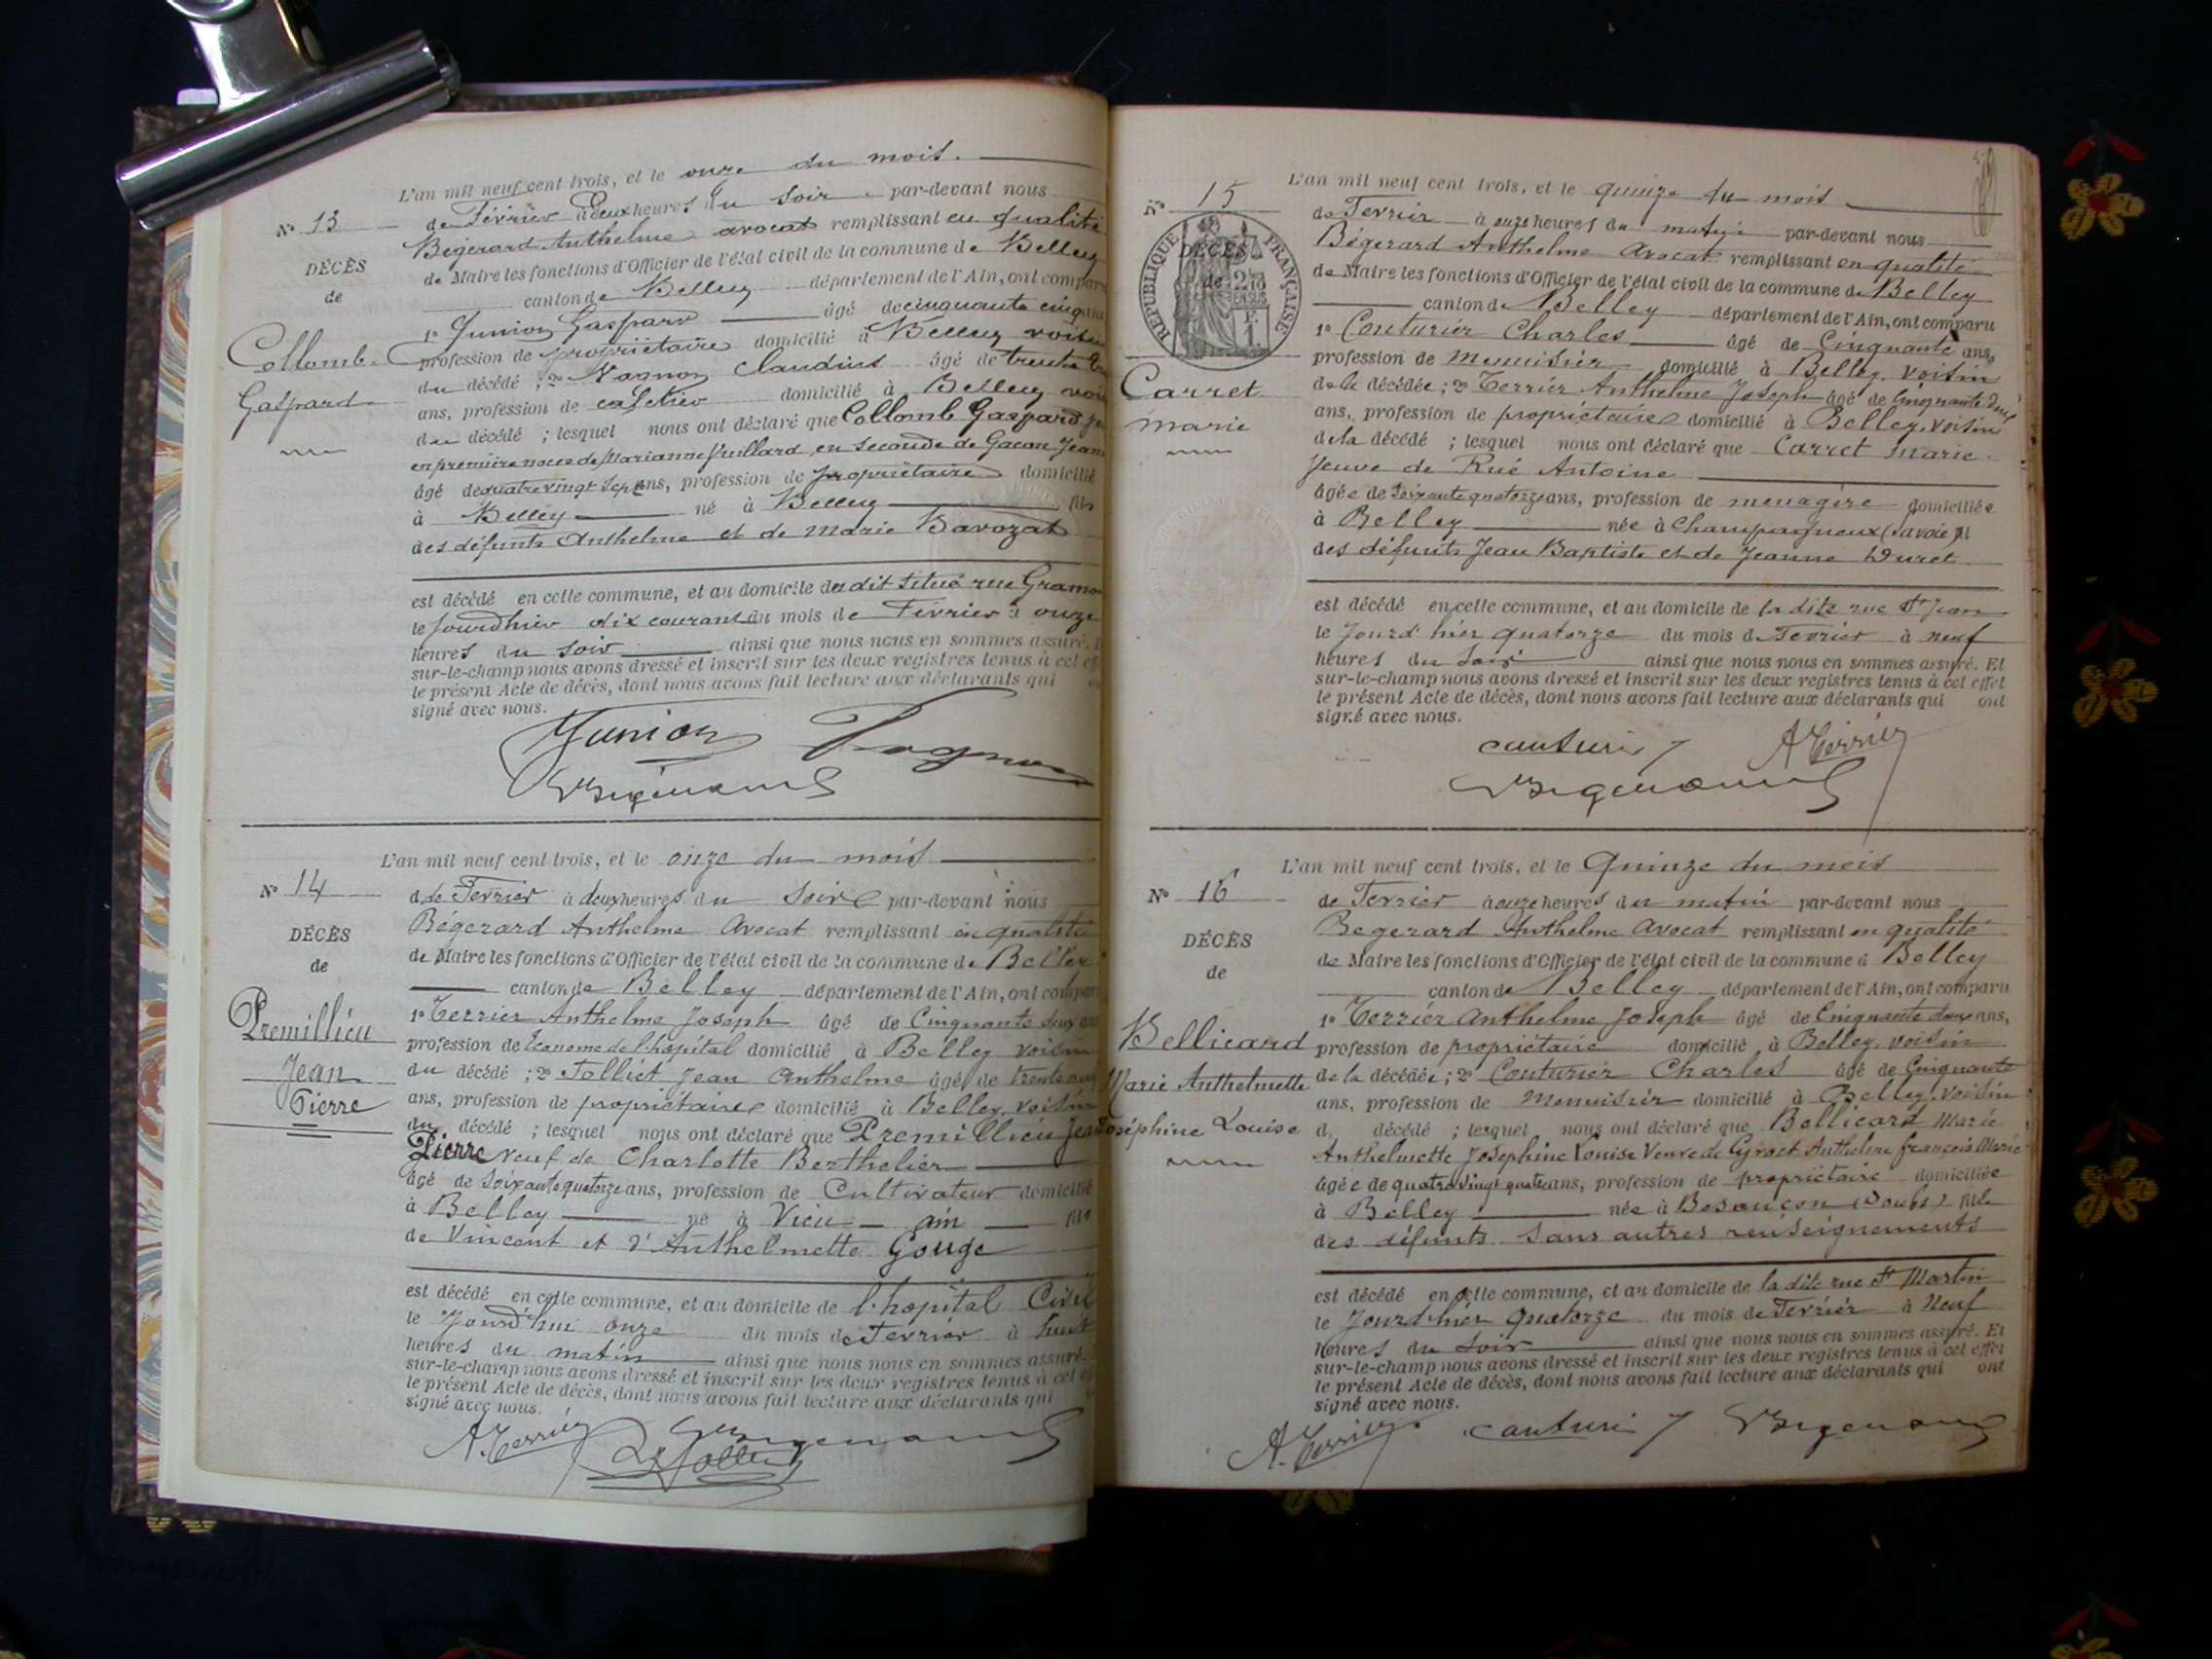 L'an mil neuf cent trois, et le onze du mois.
N° 13
de Février à deux heures du soir par-devant nous
Bégerard Anthelme avocat remplissant en qualité
DÉCÈS
de Maire les fonctions d'Officier de l'état civil de la commune de Belley
de
canton de Belley département de l'Ain, ont comparu
1° Junion Gaspard âgé de cinquante cinq ans
Collomb
profession de propriétaire domicilié à Belley voisin
Gaspard
du décédé ; 2° Vagnon Claudius âgé de trente
ans, profession de cafetier domicilié à Belley
du décédé ; lesquel nous ont déclaré que Collomb Gaspard
en première noces de Marianne Juillard, en seconde de Gacon Jeanne
âgé de quatre vingt sept ans, profession de propriétaire domicilié
à Belley né à Belley fils
des défunts Anthelme et de Marie Bavozat
est décédé en cette commune, et au domicile du dit situé rue
le jourd'hier dix courant du mois de Février à onze
heures du soir ainsi que nous nous en sommes assuré.
sur-le-champ nous avons dressé et inscrit sur les deux registres tenus à cet
le présent Acte de décès, dont nous avons fait lecture aux déclarants qui
signé avec nous.
Junion Vagnon
Bégerard
L'an mil neuf cent trois, et le onze du mois
N° 14
de Fevrier à deux heures du soir par-devant nous
DÉCÈS
Bégerard Anthelme Avocat remplissant en qualité
de
de Maire les fonctions d'Officier de l'état civil de la commune de Belley
canton de Belley département de l'Ain, ont comparu
Premillieu
1° Terrier Anthelme Joseph âgé de Cinquante deux ans
profession de Econome de l'hopital domicilié à Belley voisin
Jean
du décédé ; 2° Jolliet Jean Anthelme âgé de trente
Pierre
ans, profession de propriétaire domicilié à Belley, voisin
du décédé ; lesquel nous ont déclaré que Premillieu Jean
Pierre Veuf de Charlotte Berthelier
âgé de soixante quatorze ans, profession de Cultivateur domicilié
à Belley né à Vieu ain fils
de Vincent et d'Anthelmette Gouge
est décédé en cette commune, et au domicile de l'hopital Civil
le Jourd'hui onze du mois de Fevrier à huit
heures du matin ainsi que nous nous en sommes assuré.
sur-le-champ nous avons dressé et inscrit sur les deux registres tenus à cet
le présent Acte de décès, dont nous avons fait lecture aux déclarants qui
signé avec nous.
A. Terrier Bégerard
Jolliet
L'an mil neuf cent trois, et le quinze du mois
N° 15
de Fevrier à onze heures du matin par-devant nous
RÉPUBLIQUE FRANÇAISE
DÉCÈS
Bégerard Anthelme Avocat remplissant en qualité
de
de Maire les fonctions d'Officier de l'état civil de la commune de Belley
canton de Belley département de l'Ain, ont comparu
1° Couturier Charles âgé de Cinquante ans,
profession de menuisier domicilié à Belley, voisin
Carret
de la décédée ; 2° Terrier Anthelme Joseph âgé de Cinquante deux
marie
ans, profession de propriétaire domicilié à Belley, voisin
de la décédé ; lesquel nous ont déclaré que Carret marie
Veuve de Rué Antoine
âgée de soixante quatorze ans, profession de menagère domiciliée
à Belley née à Champagneux (Savoie)
des défunts Jean Baptiste et de Jeanne Duret
est décédé en cette commune, et au domicile de la dite rue St Jean
le Jourd'hier quatorze du mois de Fevrier à neuf
heures du soir ainsi que nous nous en sommes assuré. Et
sur-le-champ nous avons dressé et inscrit sur les deux registres tenus à cet effet
le présent Acte de décès, dont nous avons fait lecture aux déclarants qui ont
signé avec nous.
couturier A Terrier
Bégerard
L'an mil neuf cent trois, et le Quinze du mois
N° 16
de Fevrier à onze heures du matin par-devant nous
DÉCÈS
Begerard Anthelme Avocat remplissant en qualité
de
de Maire les fonctions d'Officier de l'état civil de la commune d Belley
canton de Belley département de l'Ain, ont comparu
Bellicard
1° Terrier Anthelme Joseph âgé de Cinquante deux ans,
profession de propriétaire domicilié à Belley, voisin
Marie Anthelmette
de la décédée ; 2° Couturier Charles âgé de Cinquante
ans, profession de Menuisier domicilié à Belley, voisin
Joséphine Louise
d décédé ; lesquel nous ont déclaré que Bellicard Marie
Anthelmette Josephine Louise Veuve de Anthelme françois Marie
âgée de quatre vingt quatre ans, profession de propriétaire domiciliée
à Belley née à Besançon (Doubs) fille
des défunts sans autres renseignements
est décédé en cette commune, et au domicile de la dite rue St Martin
le Jourd'hier Quatorze du mois de Fevrier à Neuf
heures du soir ainsi que nous nous en sommes assuré. Et
sur-le-champ nous avons dressé et inscrit sur les deux registres tenus à cet effet
le présent Acte de décès, dont nous avons fait lecture aux déclarants qui ont
signé avec nous.
A. Terrier couturier Bégerard